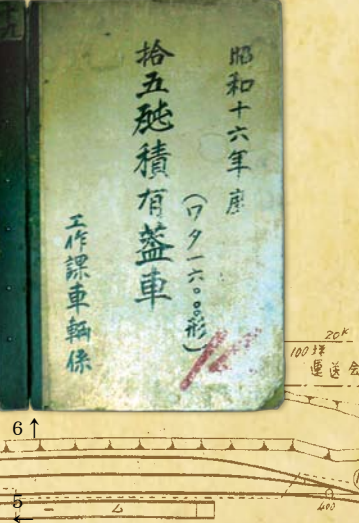 昭和十六年度
拾五瓲積有蓋車
（ワタ一六〇〇〇形）
工作課車輌係
20K
100分
運送
6↑
5
400